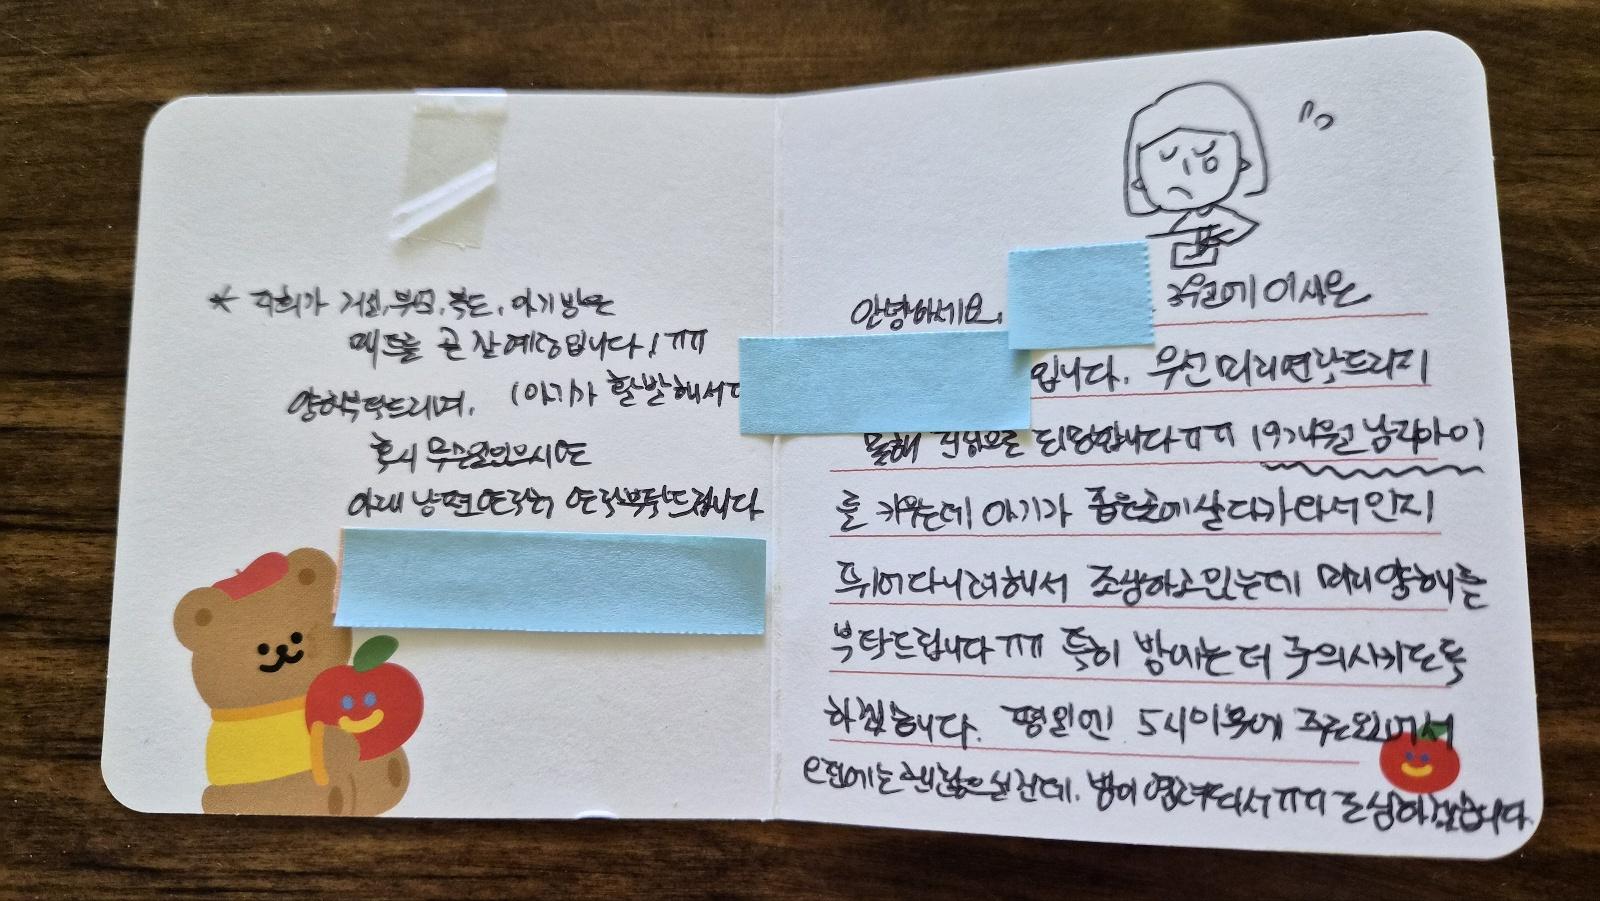 * 저희가 거실, 부엌, 복도, 아기방은
매트를 곧 깔 예정입니다! ㅠㅠ
양해부탁드리며, (아기가 활발해서
혹시 무슨일있으시면
아래 남편연락처 연락부탁드립니다
안녕하세요,
월에 이사온
입니다. 우선 미리연락드리지
못해 진심으로 죄송합니다ㅠㅠ 19개월 남자아이
를 키우는데 아기가 좁은곳에살다가와서인지
뛰어다니려해서 조심하고있는데 미리양해를
부탁드립니다ㅠㅠ 특히 밤에는 더 주의시키도록
하겠습니다. 평일엔 5시이후에 주로와있어서
전에는 괜찮으실건데, 밤이 염려되서ㅠㅠ 조심하겠습니다.